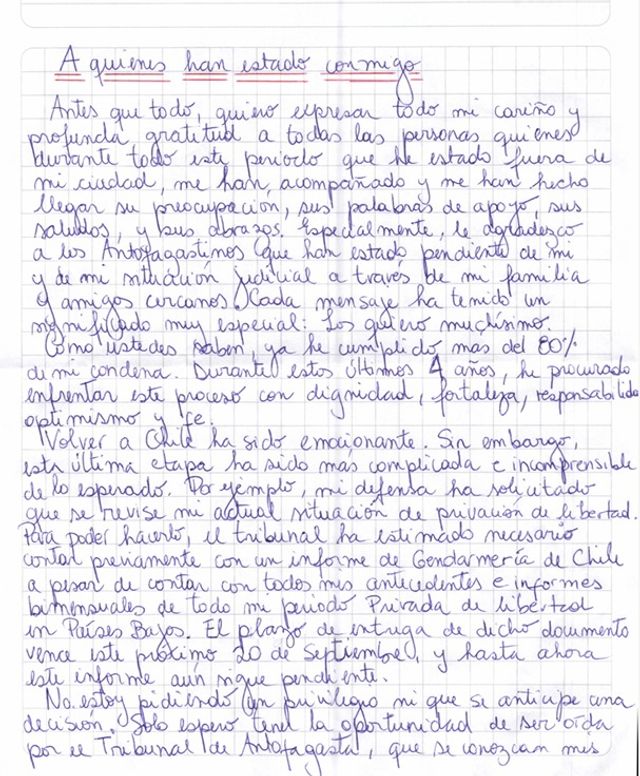 A quienes han estado conmigo
Antes que todo, quiero expresar todo mi cariño y
profunda gratitud a todas las personas quienes
durante todo este periodo que he estado fuera de
mi ciudad, me han, acompañado y me han hecho
llegar su preocupación, sus palabras de apoyo, sus
saludos, y sus abrazos. Especialmente, le agradezco
a los Antofagastinos que han estado pendiente de mi
y de mi situación judicial a través de mi familia
y amigos cercanos. Cada mensaje ha tenido un
significado muy especial: Los quiero muchísimo.
Como ustedes saben, ya he cumplido más del 80%
de mi condena. Durante estos últimos 4 años, he procurado
enfrentar este proceso con dignidad, fortaleza, responsabilidad
optimismo y fe.
Volver a Chile ha sido emocionante. Sin embargo,
esta última etapa ha sido más complicada e incomprensible
de lo esperado. Por ejemplo, mi defensa ha solicitado
que se revise mi actual situación de privación de libertad.
Para poder hacerlo, el tribunal ha estimado necesario
contar previamente con un informe de Gendarmería de Chile
a pesar de contar con todos mis antecedentes e informes
bimensuales de todo mi periodo Privada de libertad
en Países Bajos. El plazo de entrega de dicho documento
vence este próximo 20 de Septiembre, y hasta ahora
este informe aún sigue pendiente.
No estoy pidiendo un privilegio ni que se anticipe una
decisión. Solo espero tener la oportunidad de ser oída
por el Tribunal de Antofagasta, que se conozcan mis